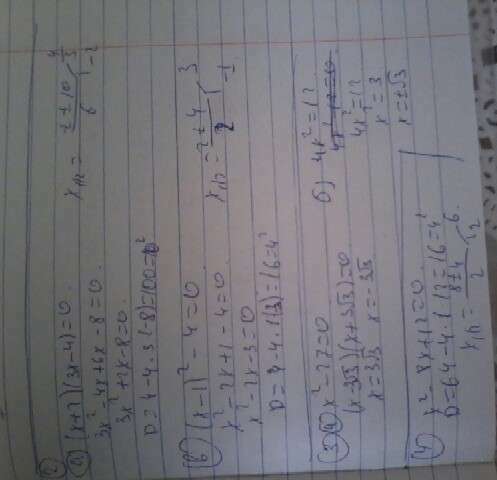 2
а) (x+2)(3x-4)=0.
3x²-4x+6x-8=0.
3x²+2x-8=0.
D=4-4·3·(-8)=100=10²
x₁,₂ = -2±10 / 6 4/3 -2
б) (x-1)²-4=0
x²-2x+1-4=0.
x²-2x-3=0
D=4-4·1·(-3)=16=4²
x₁,₂ = 2±4 / 2 3 -1
3 а) x²-27=0
(x-3√3)(x+3√3)=0
x=3√3 x=-3√3
б) 4x²=12
4x²=12
x²=3
x=±√3
4 x²-8x+12=0.
D=64-4·1·12=16=4²
x₁,₂ = 8±4 / 2 6 2